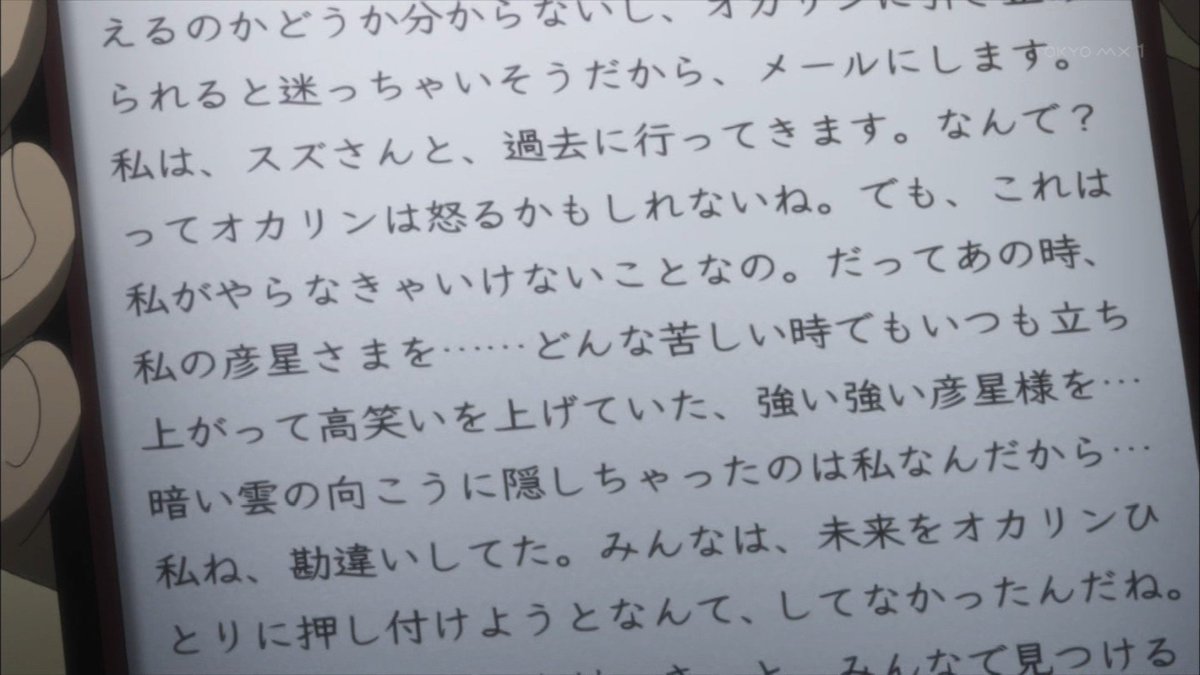 えるのかどうか分からないし、オカリンに引き止め
TOKYO MX1
られると迷っちゃいそうだから、メールにします。
私は、スズさんと、過去に行ってきます。なんで？
ってオカリンは怒るかもしれないね。でも、これは
私がやらなきゃいけないことなの。だってあの時、
私の彦星さまを……どんな苦しい時でもいつも立ち
上がって高笑いを上げていた、強い強い彦星様を…
暗い雲の向こうに隠しちゃったのは私なんだから…
私ね、勘違いしてた。みんなは、未来をオカリンひ
とりに押し付けようとなんて、してなかったんだね。
みんなで見つける